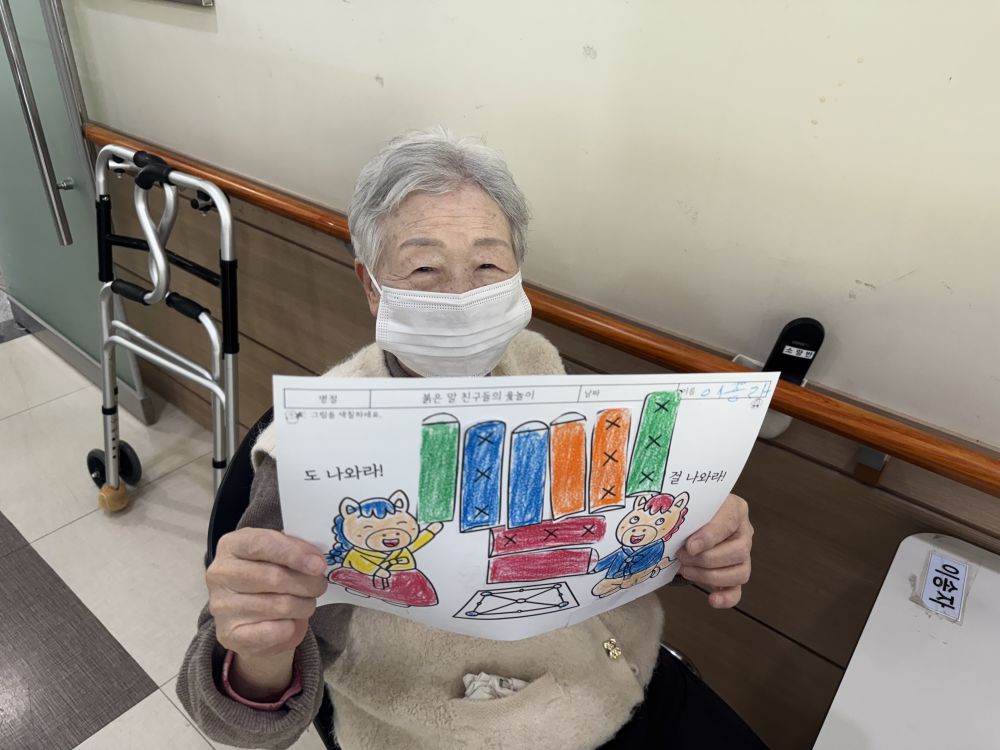 명절 붉은 말 친구들의 윷놀이 날짜 이름
그림을 색칠하세요.
도 나와라!
걸 나와라!
소망반
이송자